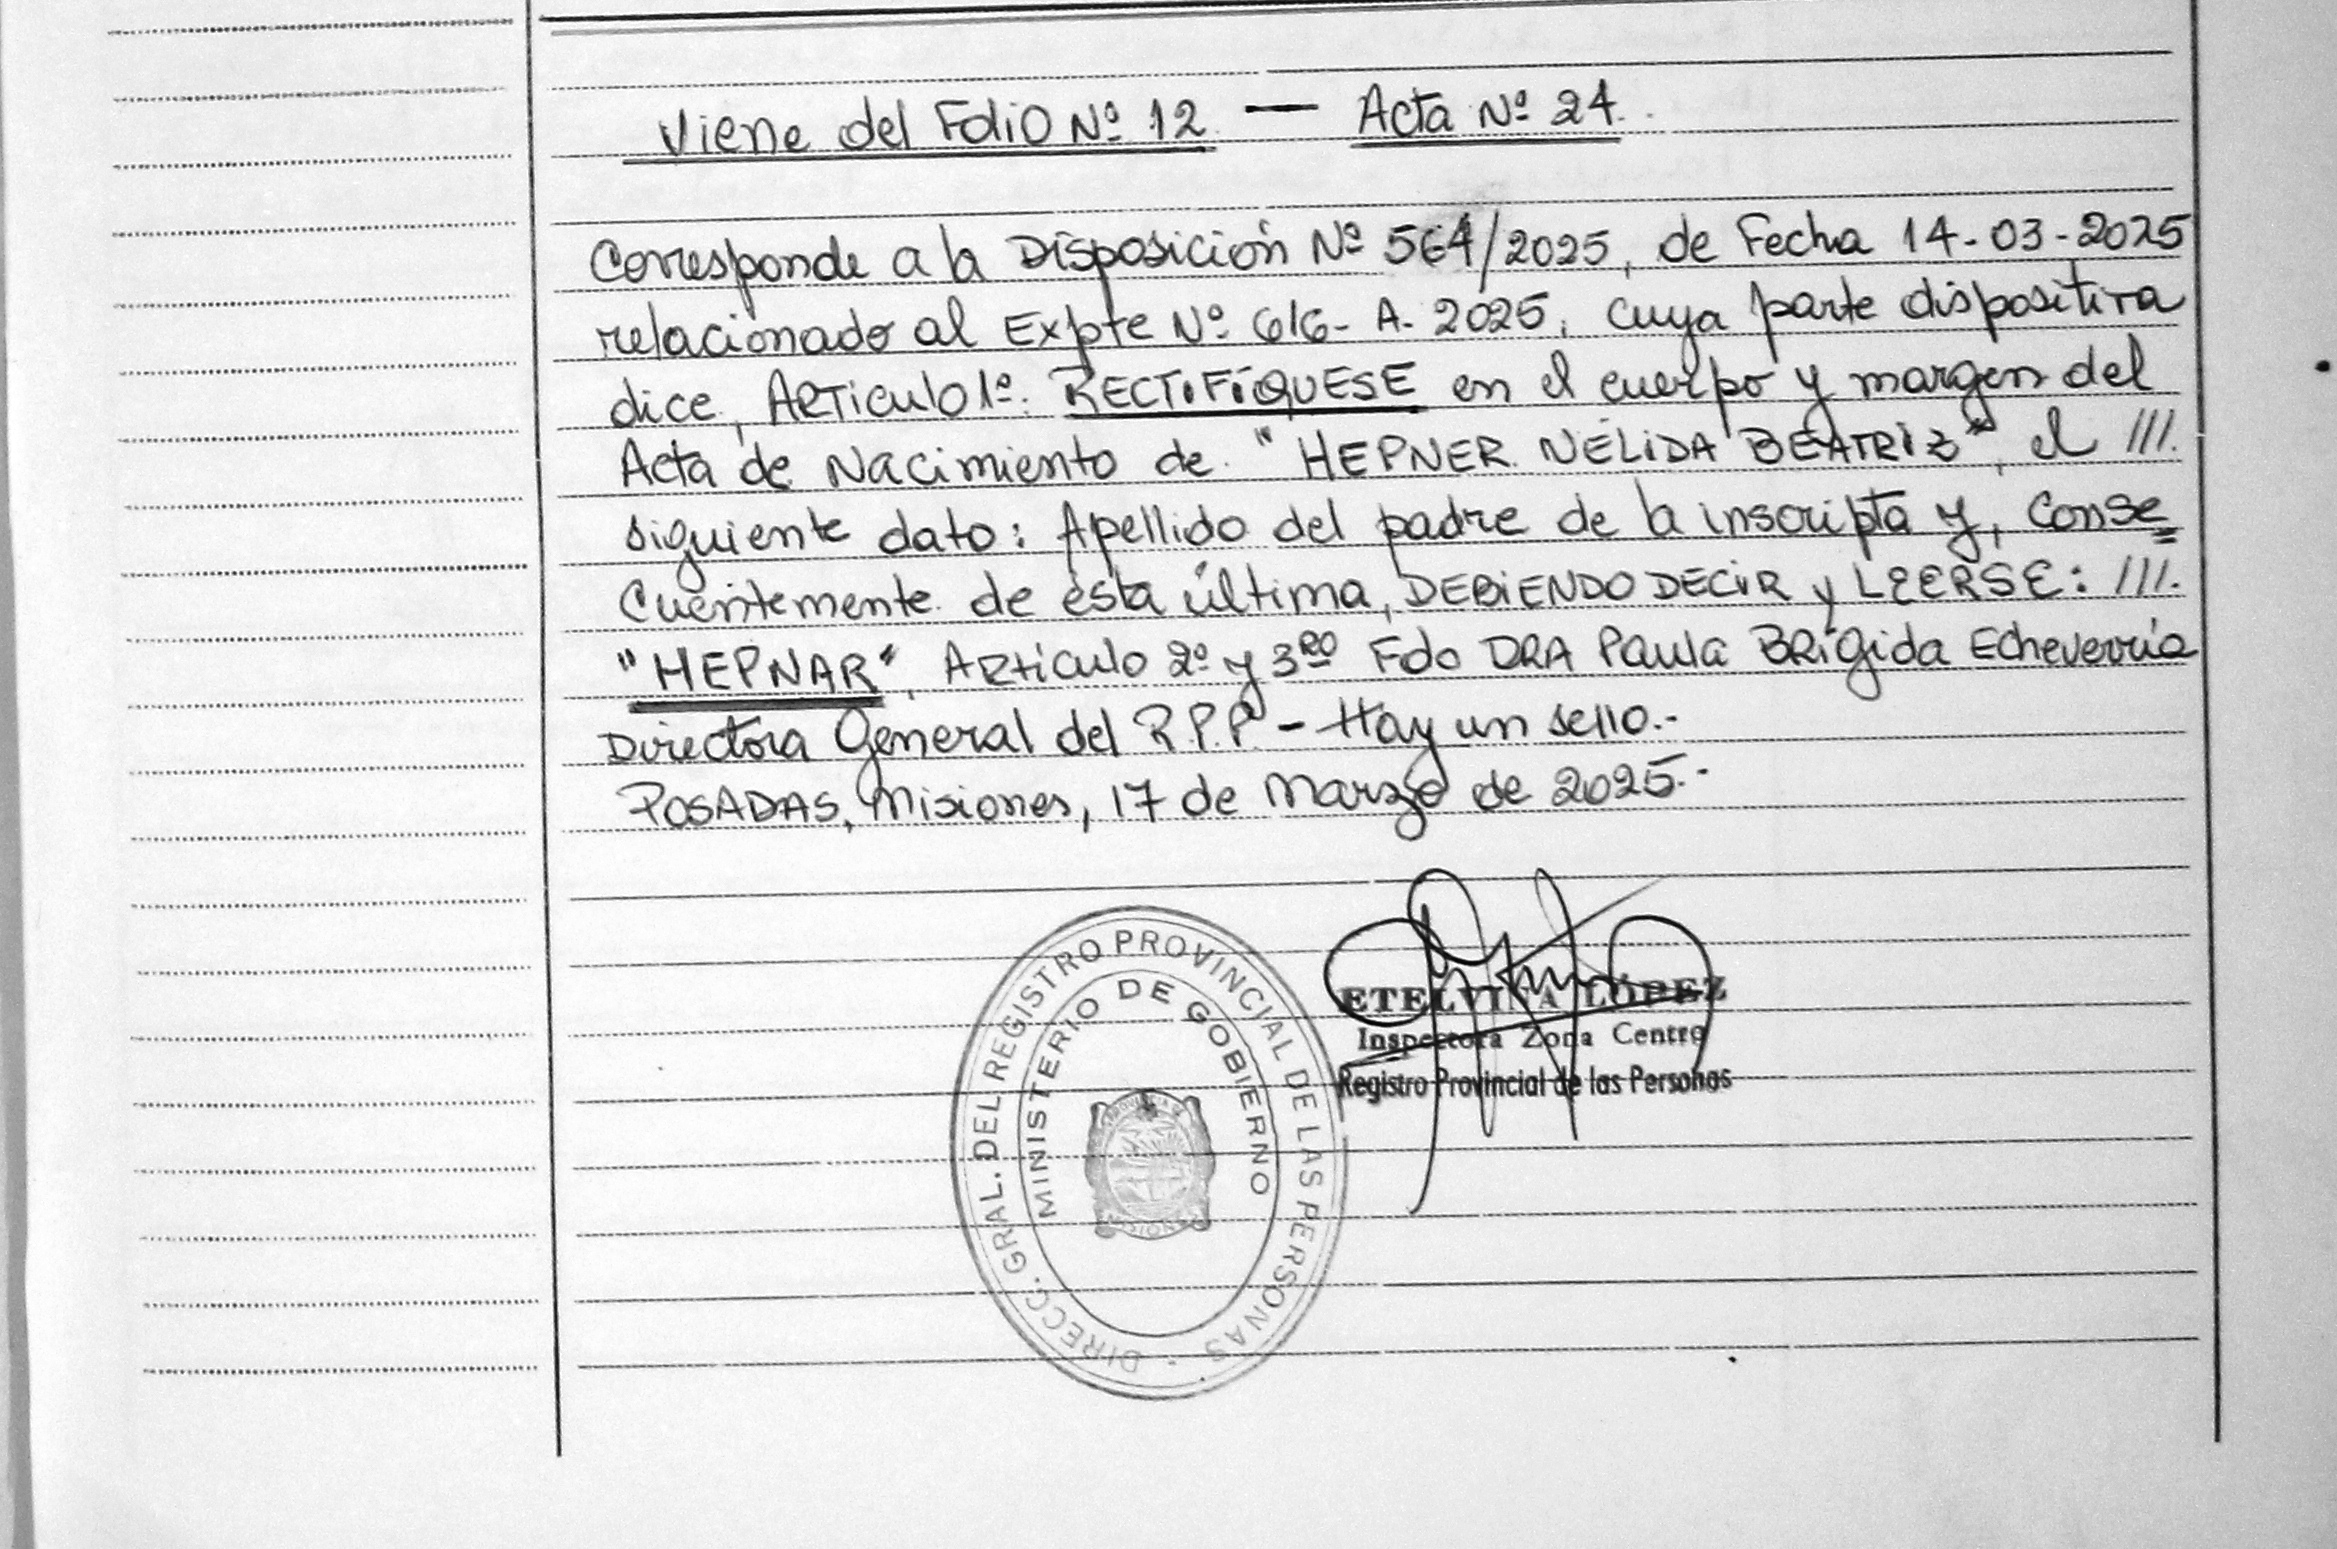 Viene del Folio Nº 12 — Acta Nº 24.
Corresponde a la Disposición Nº 564/2025, de Fecha 14-03-2025
relacionado al Expte Nº 616- A- 2025, cuya parte dispositiva
dice, Articulo 1º. RECTIFÍQUESE en el cuerpo y margen del
Acta de Nacimiento de "HEPNER NÉLIDA BEATRIZ", el ///.
siguiente dato: Apellido del padre de la inscripta y, Conse=
cuentemente de ésta última, DEBIENDO DECIR y LEERSE: ///.
"HEPNAR", Artículo 2º y 3RO Fdo DRA Paula BRígida Echeverría
Directora General del R.P.P - Hay un sello.-
POSADAS, Misiones, 17 de Marzo de 2025.-
DIRECC. GRAL. DEL REGISTRO PROVINCIAL DE LAS PERSONAS
MINISTERIO DE GOBIERNO
PROVINCIA
MISIONES
ETELVINA LÓPEZ
Inspectora Zona Centro
Registro Provincial de las Personas